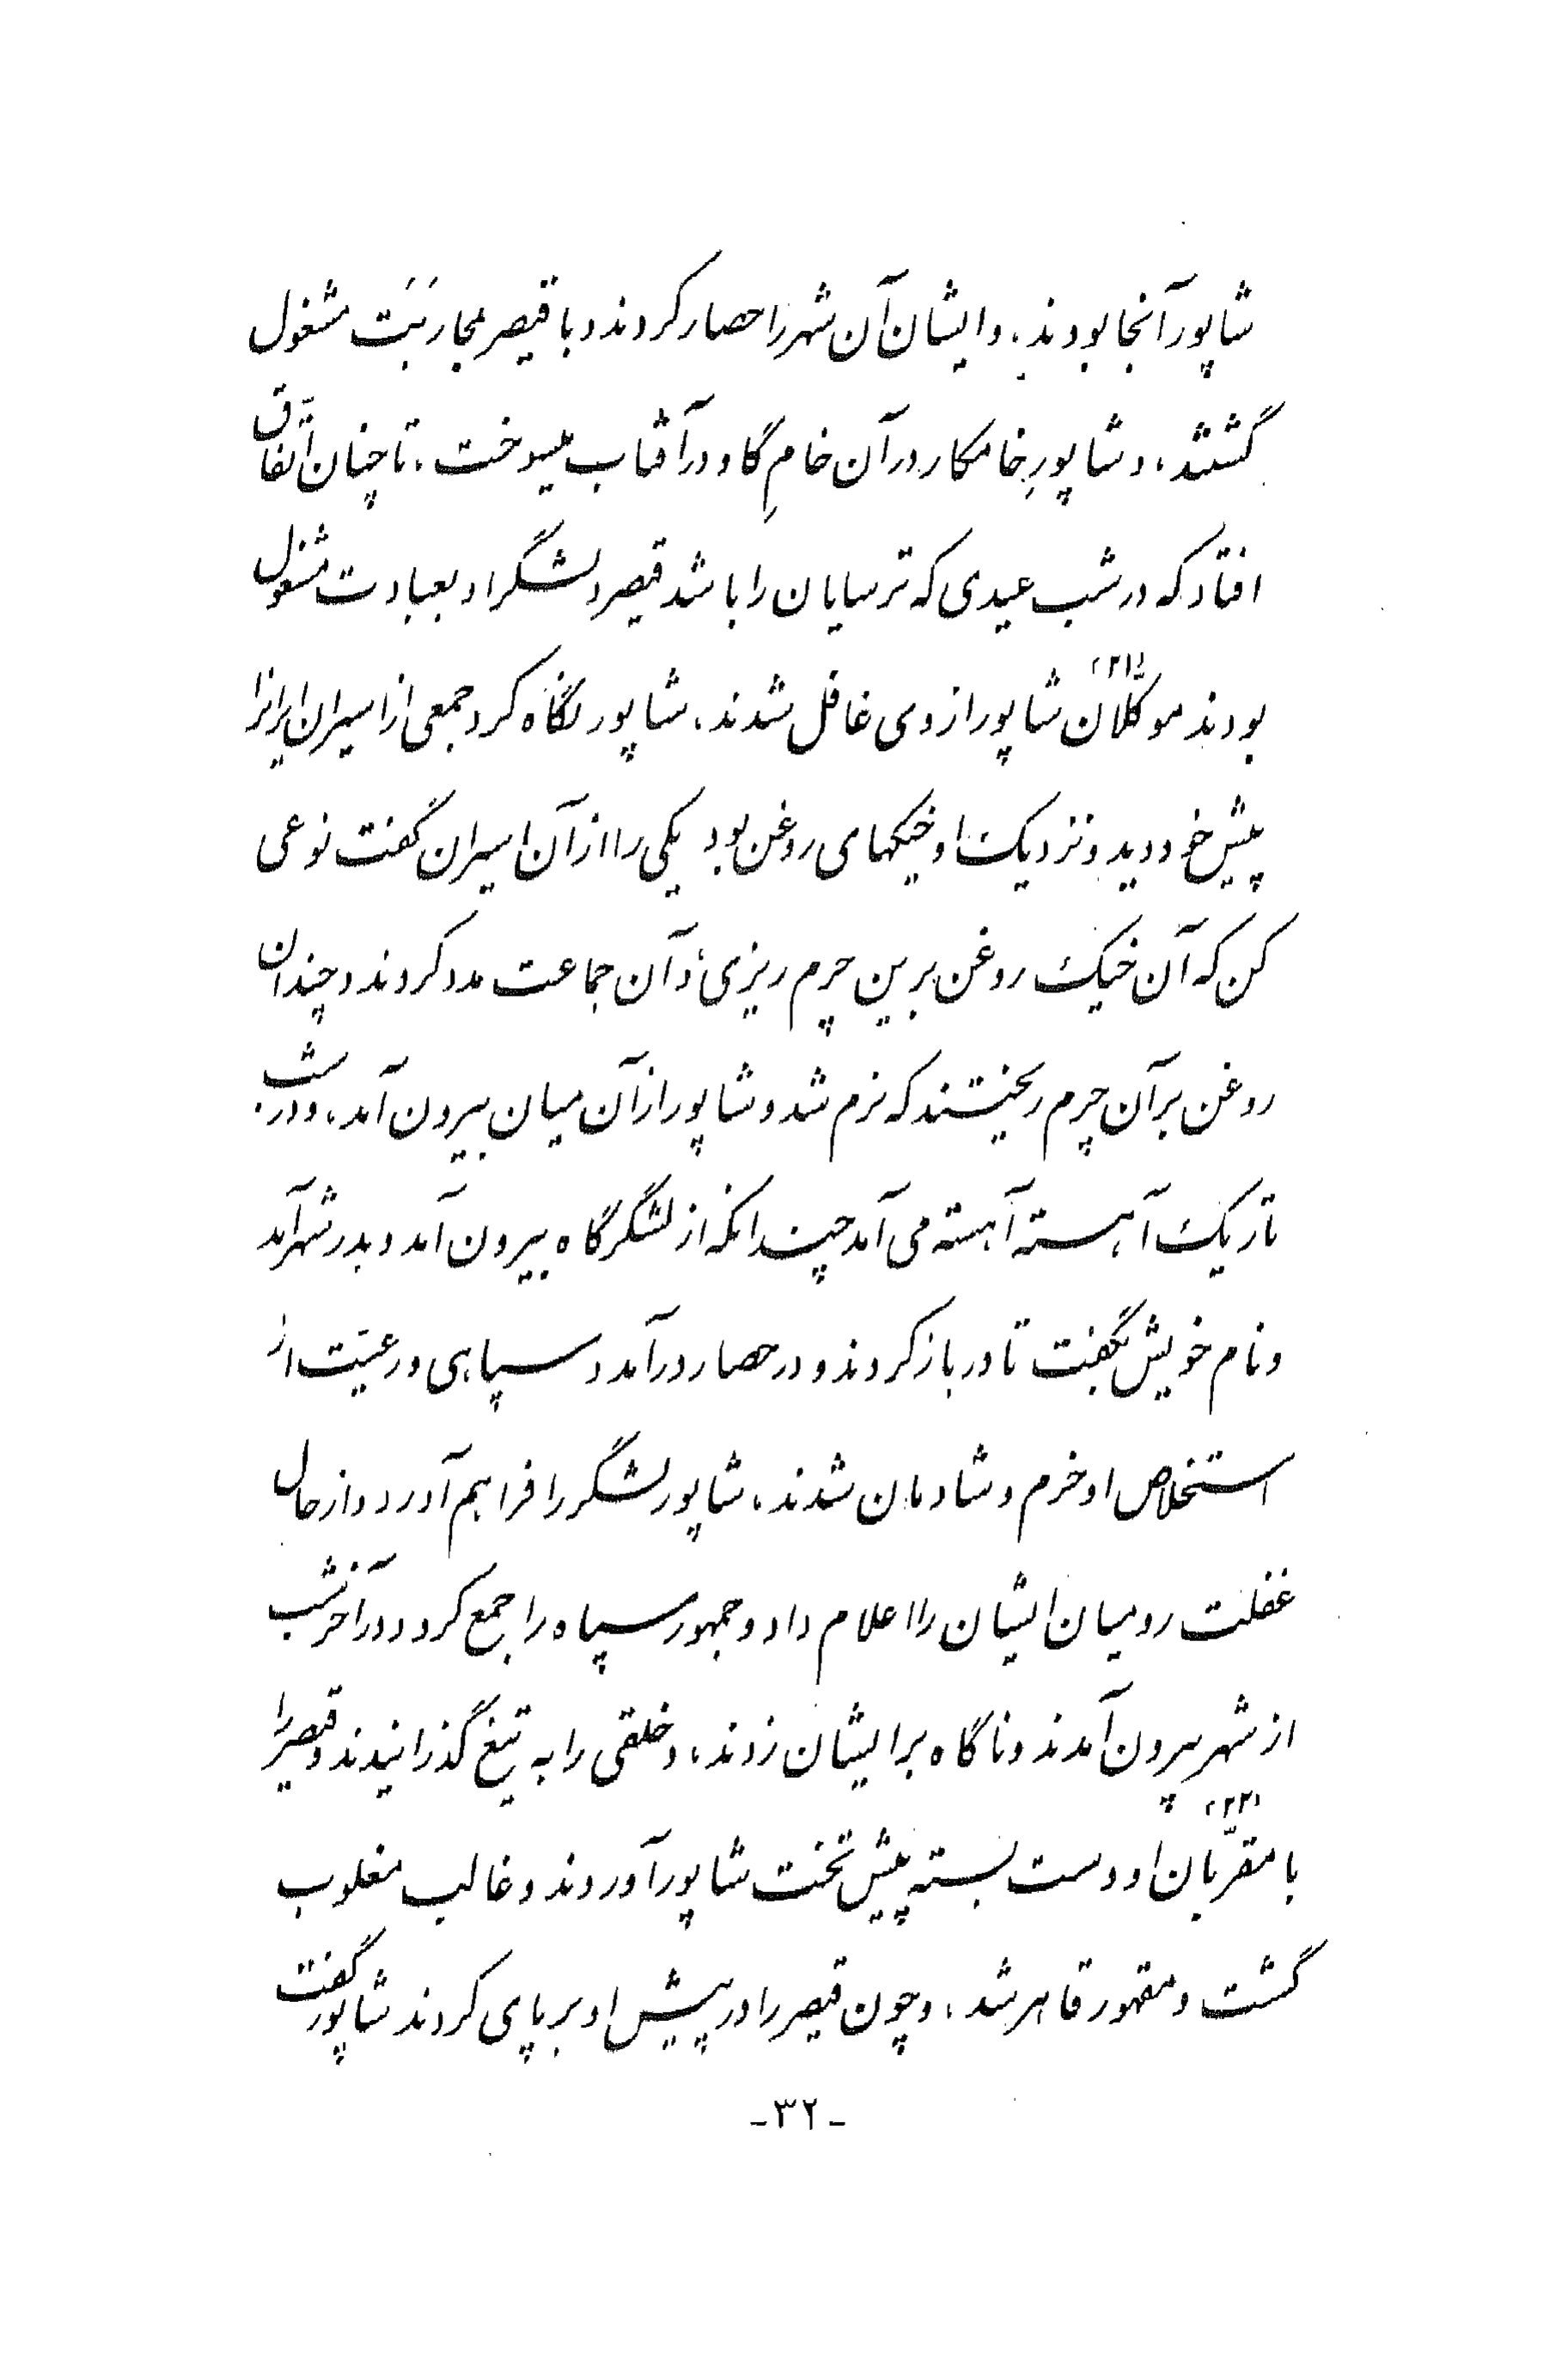 شاپور آنجا بودند، و ایشان آن شهر را حصار کردند و با قیصر بمحاربَت مشغول
گشتند، و شاپورِ خامکار در آن خامِ گاو در آفتاب میسوخت، تا چنان اتّفاق
افتاد که در شب عیدی که ترسایان را باشد قیصر و لشگر او بعبادت مشغول
بودند موکّلان (۲۱) شاپور از وی غافل شدند، شاپور نگاه کرد جمعی از اسیران ایرانرا
پیش خود دید و نزدیک او خیکهای روغن بود یکی را از آن اسیران گفت نوعی
کن که آن خیک روغن برین چرم ریزی، و آن جماعت مدد کردند و چندان
روغن بر آن چرم ریختند که نرم شد و شاپور از آن میان بیرون آمد، و در شب
تاریک آهسته آهسته می آمد چندانکه از لشگرگاه بیرون آمد و بدر شهر آمد
و نام خویش بگفت تا در باز کردند و در حصار درآمد و سپاهی و رعیّت از
استخلاص او خرم و شادمان شدند، شاپور لشگر را فراهم آورد و از حال
غفلت رومیان ایشان را اعلام داد و جمهور سپاه را جمع کرد و در آخر شب
از شهر بیرون آمدند و ناگاه بر ایشان زدند، و خلقی را به تیغ گذرانیدند و قیصر را
با مقرّبان (۲۲) او دست بسته پیش تخت شاپور آوردند و غالب مغلوب
گشت و مقهور قاهر شد، و چون قیصر را در پیش او بر پای کردند شاپور گفت
-۳۲-